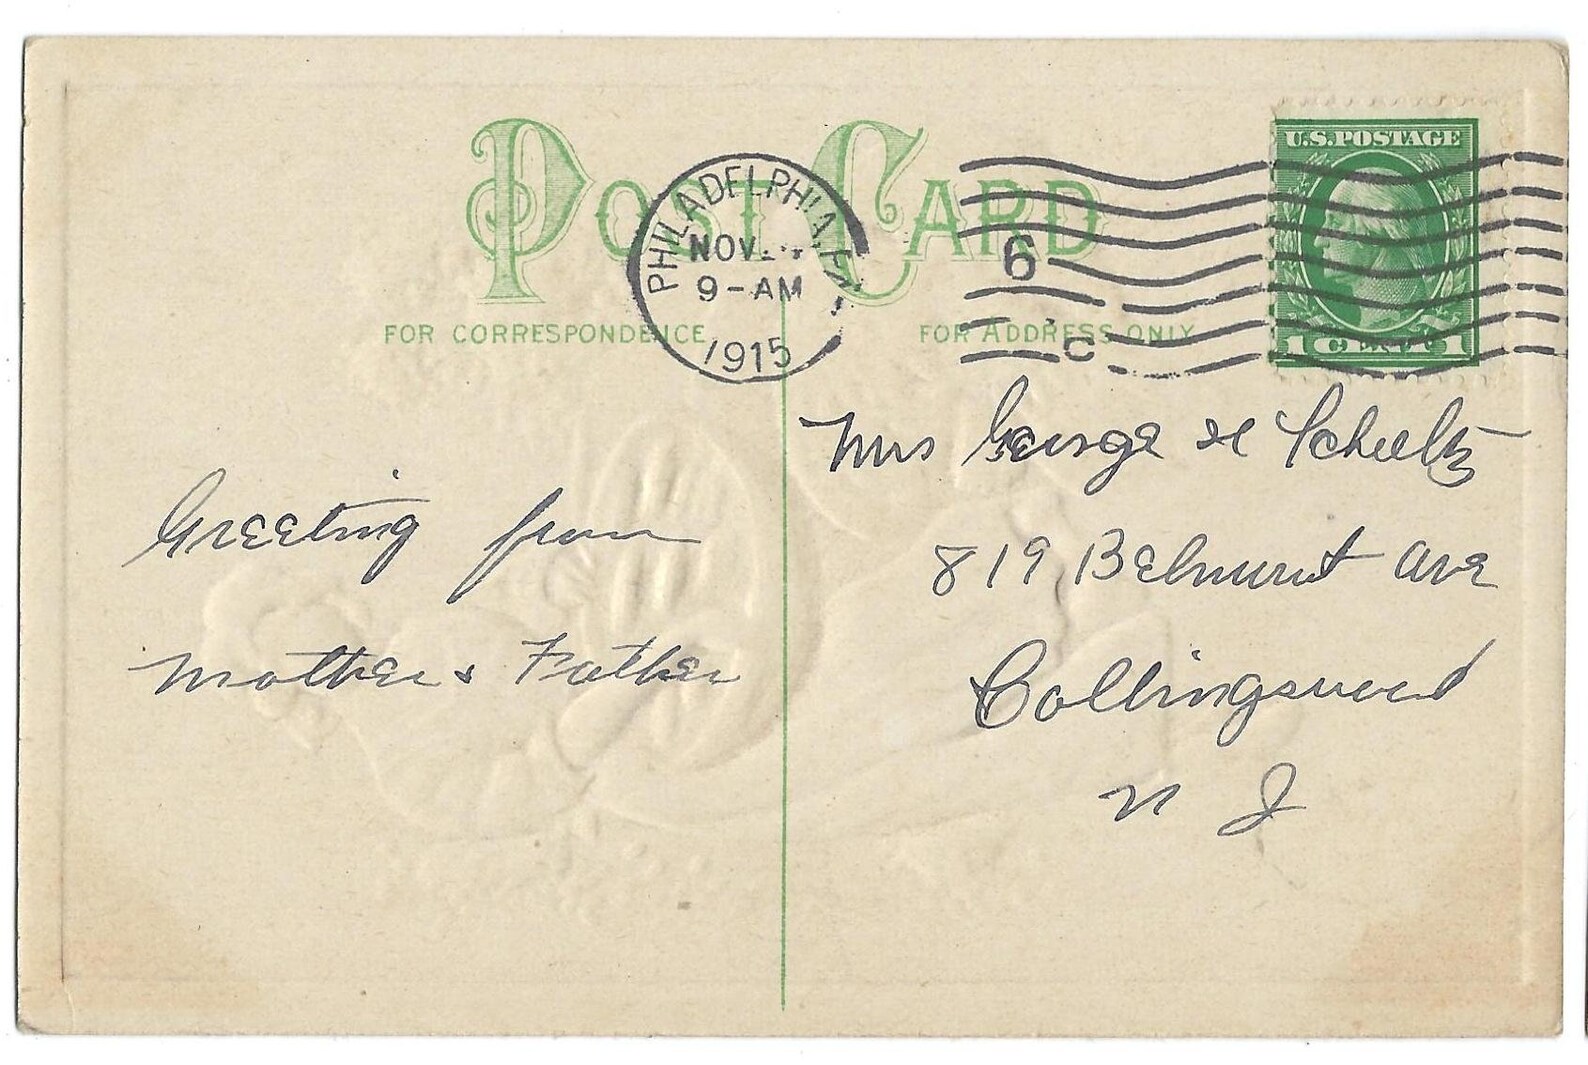 POST CARD
FOR CORRESPONDENCE
FOR ADDRESS ONLY
PHILADELPHIA, PA
NOV
9-AM
1915
6
C
U.S. POSTAGE
1 CENT 1
Greeting from
Mother & Father
Mrs George H Scheeltz
819 Belmurst Ave
Collingswood
N J